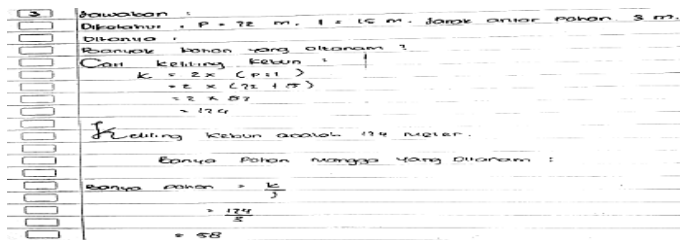 3 Jawaban :
Diketahui : P = 72 m. l = 15 m. Jarak antar pohon 3 m.
Ditanya :
Banyak pohon yang ditanam ?
Cari keliling kebun :
K = 2 x (p+l)
= 2 x (72 + 15)
= 2 x 87
= 174
Keliling kebun adalah 174 meter.
Banya Pohon mangga yang Ditanam :
Banya pohon = K
3
= 174
3
= 58